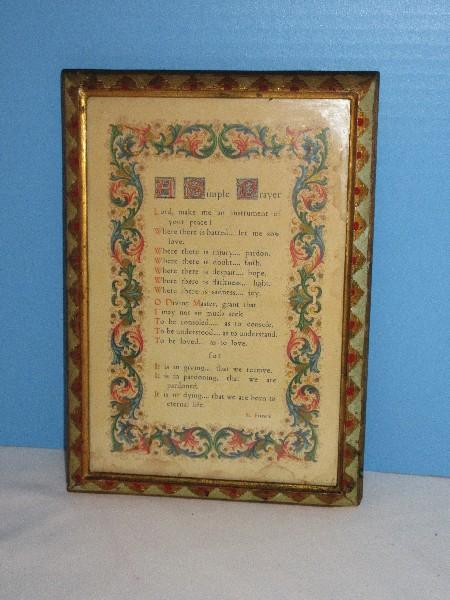 A Simple Prayer
Lord, make me an instrument of
your peace!
Where there is hatred.... let me sow
love.
Where there is injury.... pardon.
Where there is doubt.... faith.
Where there is despair.... hope.
Where there is darkness.... light.
Where there is sadness.... joy.
O Divine Master, grant that
I may not so much seek
To be consoled.... as to console.
To be understood... as to understand.
To be loved... as to love.
for
It is in giving.... that we receive.
It is in pardoning, that we are
pardoned.
It is in dying.... that we are born to
eternal life.
St. Francis